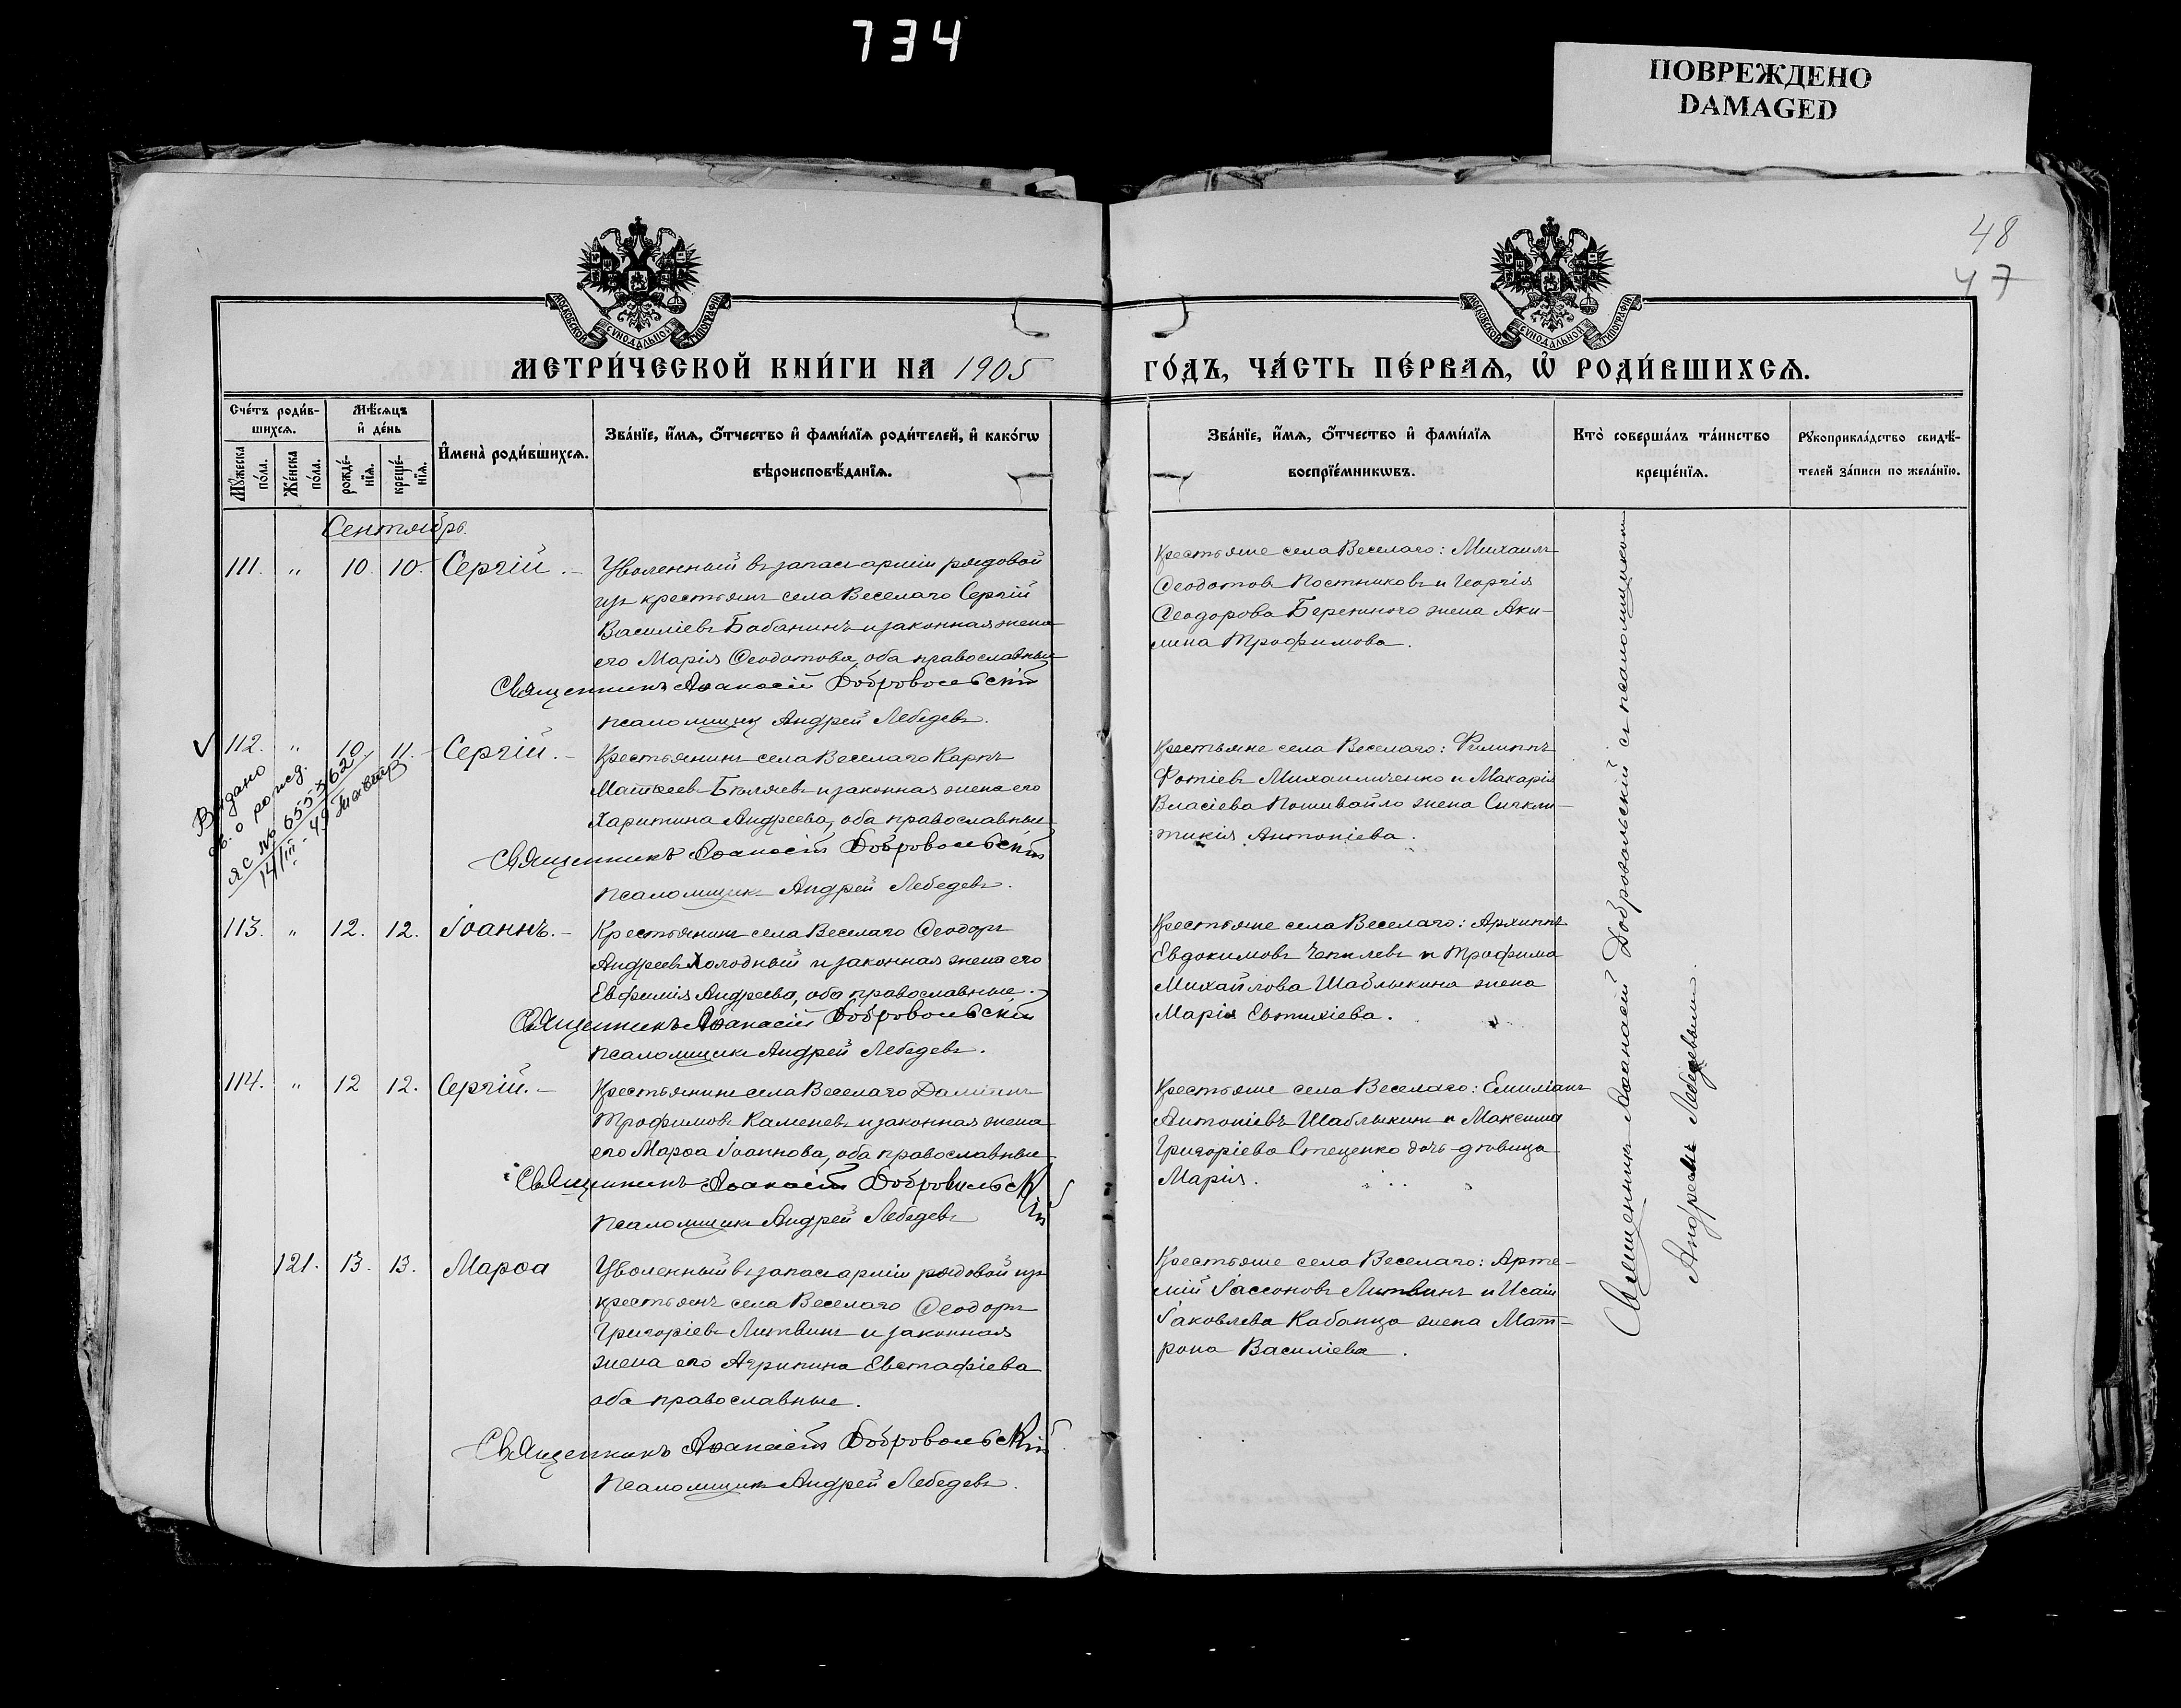 734
ПОВРЕЖДЕНО
DAMAGED
48
47
МОСКОВСКОЙ СѴНОДАЛЬНОЙ ТИПОГРАФІИ
МОСКОВСКОЙ СѴНОДАЛЬНОЙ ТИПОГРАФІИ
МЕТРИ́ЧЕСКОЙ КНИ́ГИ НА 1905
ГО́ДЪ, ЧА́СТЬ ПЕ́РВАЯ, Ѡ҆ РОДИ́ВШИХСЯ.
Сче́тъ роди́в-
шихся.
Мꙋ́жеска по́ла.
Же́нска по́ла.
Мѣ́сяцъ
и҆ де́нь
рожде́-
нїя.
креще́-
нїя.
И҆мена̀ роди́вшихся.
Зва́нїе, и҆́мя, ѻ҆́тчество и҆ фами́лїя роди́телей, и҆ како́гѡ
вѣроисповѣ́данїя.
Зва́нїе, и҆́мя, ѻ҆́тчество и҆ фами́лїя
воспрїе́мникѡвъ.
Кто̀ соверша́лъ та́инство
креще́нїя.
Рꙋкоприкла́дство свидѣ́-
телей за́писи по жела́нїю.
Сентябрь.
111. " 10. 10. Сергій. –
Уволенный въ запасъ арміи рядовой
изъ крестьянъ села Веселаго Сергій
Василіевъ Бабанинъ и законная жена
его Марія Ѳеодотова, оба православные
Священникъ Аѳанасій Добровольскій
псаломщикъ Андрей Лебедевъ.
Крестьяне села Веселаго: Михаилъ
Ѳеодотовъ Постниковъ и Георгія
Ѳеодорова Бережного жена Аки-
лина Трофимова.
112. " 10 11. – Сергій. –
Выдано
св. о рожд.
ЯС № 655362
14/III – 49
Крестьянинъ села Веселаго Карпъ
Матѳеевъ Бѣляевъ и законная жена его
Харитина Андреева, оба православные
Священникъ Аѳанасій Добровольскій
псаломщикъ Андрей Лебедевъ.
Крестьяне села Веселаго: Филиппъ
Фотіевъ Михаиличенко и Макарія
Власіева Пошивайло жена Сигкли-
тикія Антоніева.
113. " 12. 12. Іоаннъ. –
Крестьянинъ села Веселаго Ѳеодоръ
Андреевъ Холодный и законная жена его
Евфимія Андреева, оба православные.
Священникъ Аѳанасій Добровольскій
псаломщикъ Андрей Лебедевъ.
Крестьяне села Веселаго: Архиппъ
Евдокимовъ Чепилевъ и Трофима
Михайлова Шаблыкина жена
Марія Евтихіева.
114. " 12 12. Сергій. –
Крестьянинъ села Веселаго Даміанъ
Трофимовъ Каменевъ и законная жена
его Марѳа Іоаннова, оба православные
Священникъ Аѳанасій Добровольскій
псаломщикъ Андрей Лебедевъ
Крестьяне села Веселаго: Емиліанъ
Антоніевъ Шаблыкинъ и Максима
Григоріева Стеценко дочь-дѣвица
Марія.
121. 13. 13. Марѳа
Уволенный въ запасъ арміи рядовой изъ
крестьянъ села Веселаго Ѳеодоръ
Григоріевъ Литвинъ и законная
жена его Агрипина Евстафіева
оба православные.
Священникъ Аѳанасій Добровольскій
псаломщикъ Андрей Лебедевъ.
Крестьяне села Веселаго: Арте-
мій Іассоновъ Литвинъ и Исаіи
Іаковлева Кабанца жена Мат-
рона Василіева.
Священникъ Аѳанасій Добровольскій съ псаломщикомъ
Андреемъ Лебедевымъ.